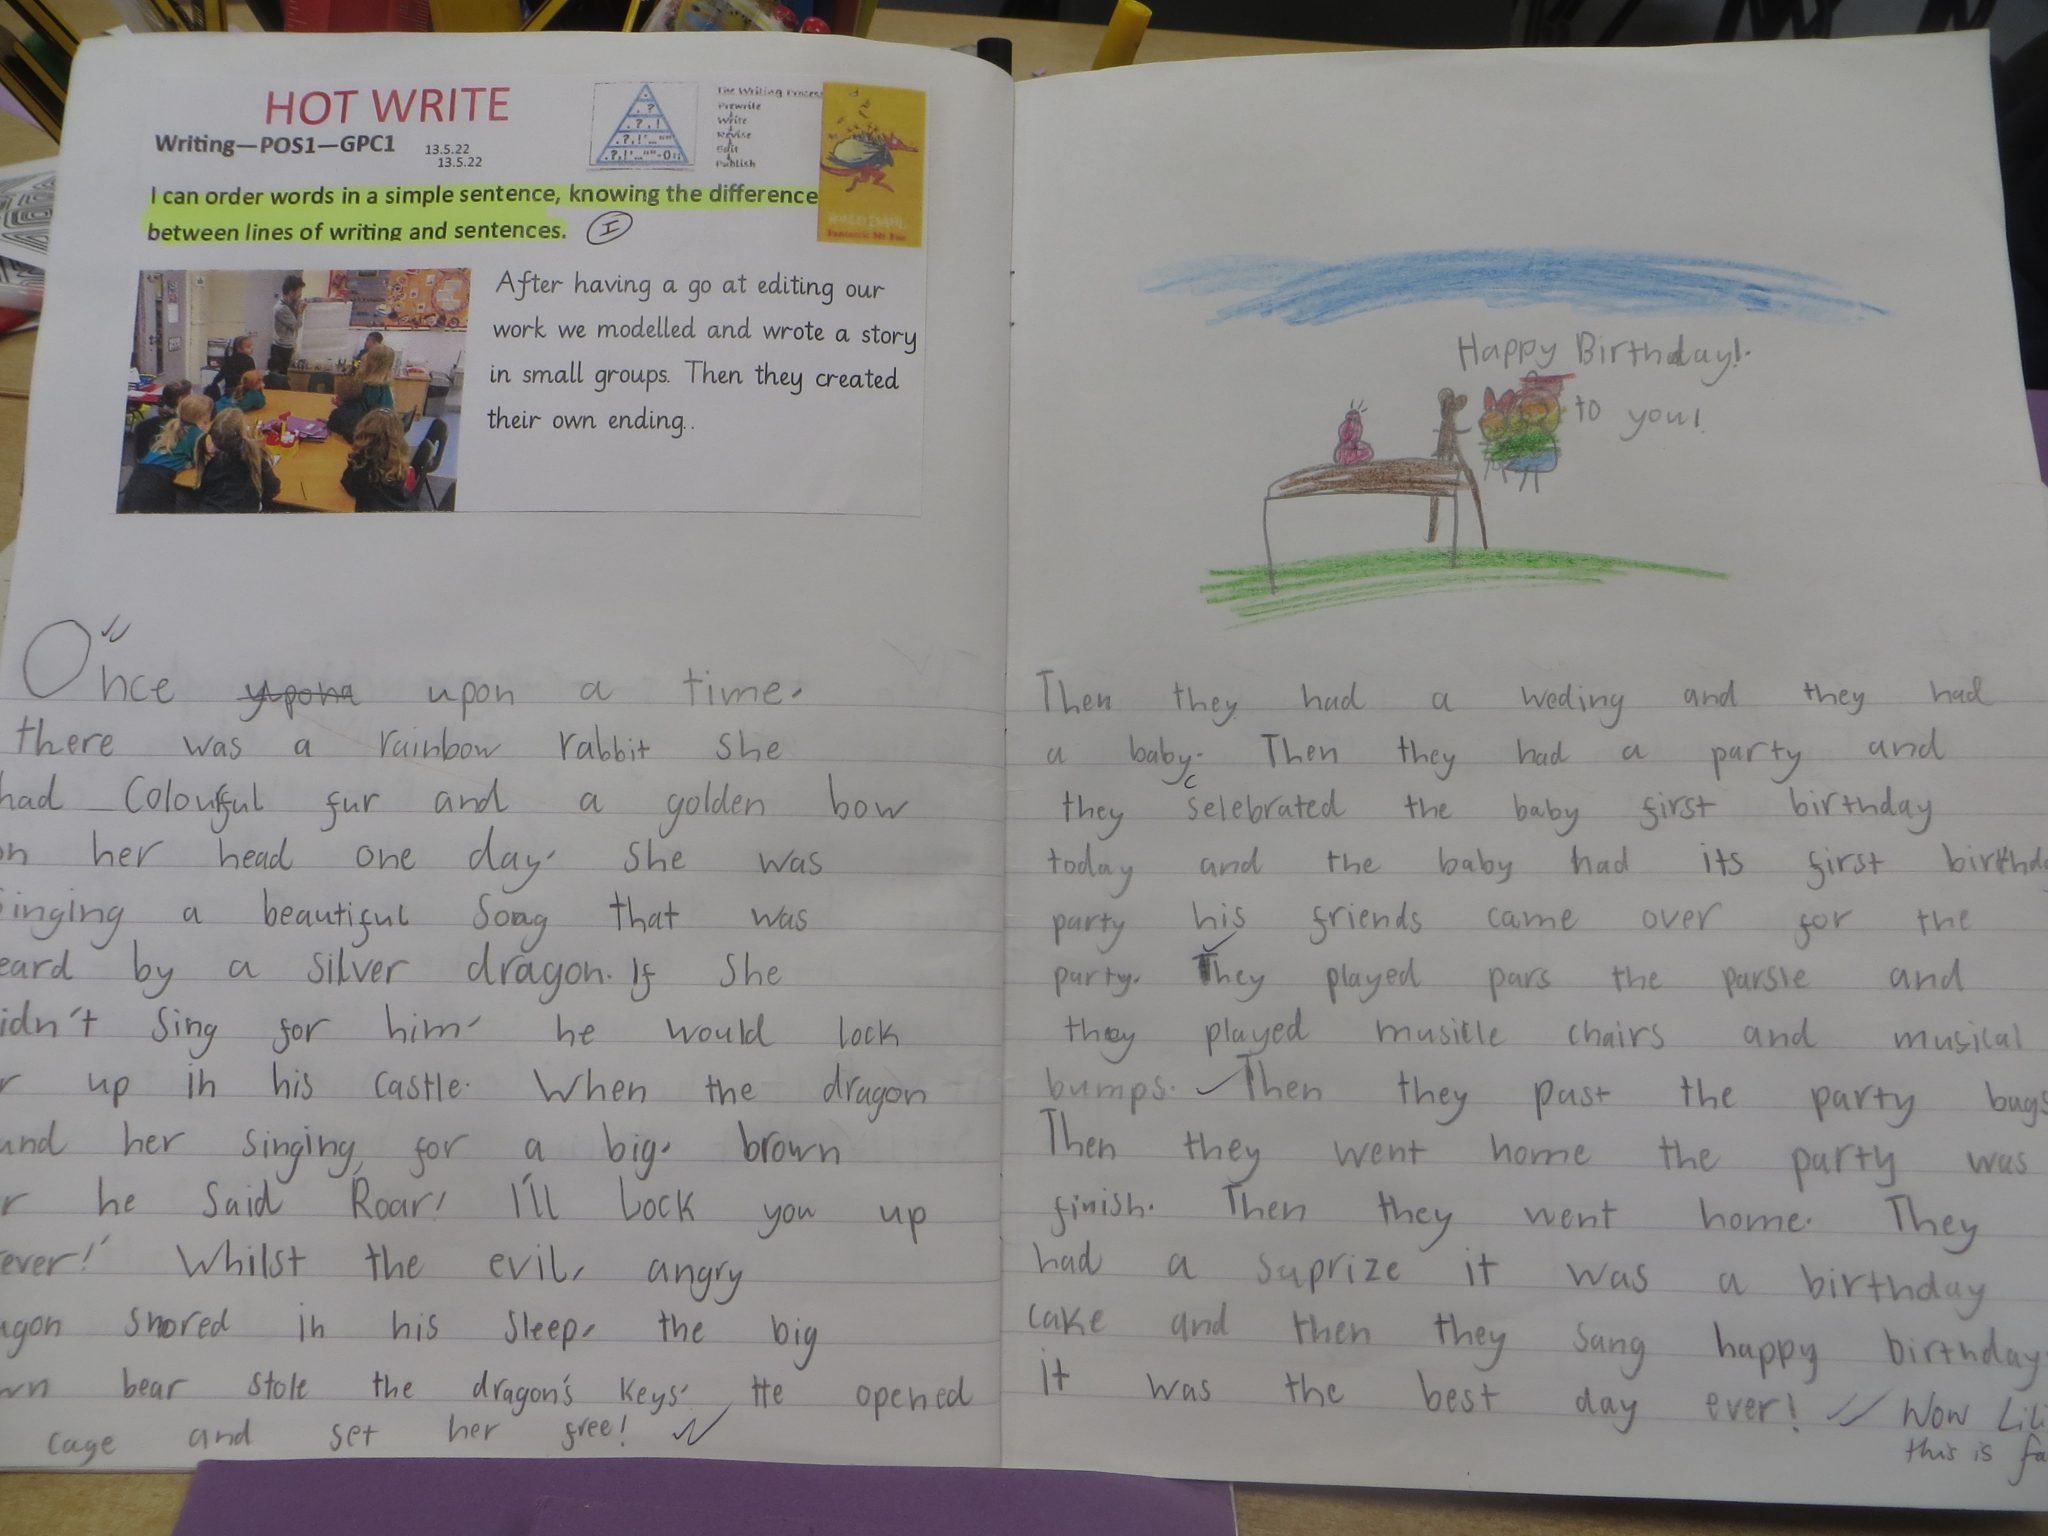 HOT WRITE
Writing—POS1—GPC1
13.5.22
13.5.22
The Writing Process
Prewrite
Write
Revise
Edit
Publish
I can order words in a simple sentence, knowing the difference
between lines of writing and sentences. I
Fantastic Mr Fox
After having a go at editing our
work we modelled and wrote a story
in small groups. Then they created
their own ending..
Once upon a time.
there was a rainbow rabbit She
had Colourful fur and a golden bow
on her head one day. She was
Singing a beautiful Song that was
eard by a silver dragon. If She
idn't Sing for him, he would lock
r up in his castle. When the dragon
und her singing, for a big, brown
r he Said Roar! I'll Lock you up
ever!' Whilst the evil, angry
agon snored in his sleep, the big
wn bear stole the dragon's keys. He opened
cage and set her free!
Happy Birthday!
to you!
Then they had a weding and they had
a baby. Then they had a party and
c
they selebrated the baby first birthday
today and the baby had its first birthda
party his friends came over for the
party. They played pars the parsle and
they played musicle chairs and musical
bumps. Then they past the party bags
Then they went home the party was
finish. Then they went home. They
had a suprize it was a birthday
cake and then they sang happy birthday
it was the best day ever! Wow Lili
this is fa